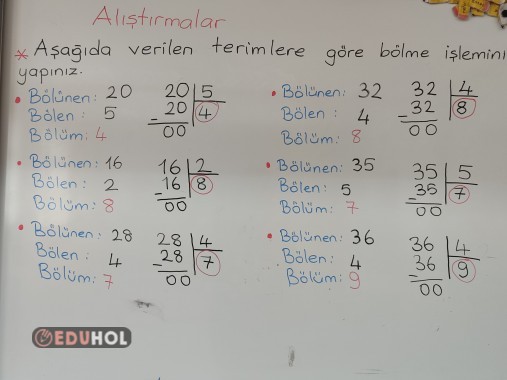 Alıştırmalar
* Aşağıda verilen terimlere göre bölme işlemini
yapınız.
• Bölünen: 20
Bölen : 5
Bölüm: 4
20 5
- 20 4
00
• Bölünen: 16
Bölen : 2
Bölüm: 8
16 2
- 16 8
00
• Bölünen: 28
Bölen : 4
Bölüm: 7
28 4
- 28 7
00
• Bölünen: 32
Bölen : 4
Bölüm: 8
32 4
- 32 8
00
• Bölünen: 35
Bölen : 5
Bölüm: 7
35 5
- 35 7
00
• Bölünen: 36
Bölen: 4
Bölüm: 9
36 4
- 36 9
00
EDUHOL